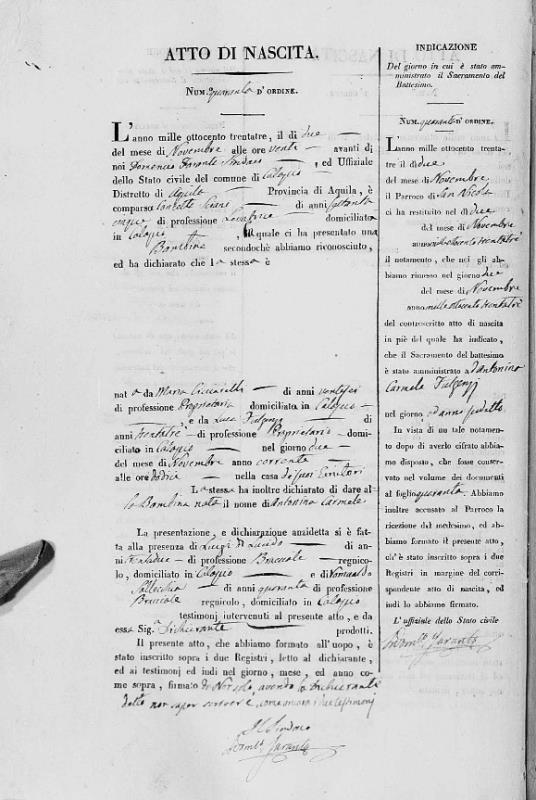 ATTO DI NASCITA.
NUM. quaranta D'ORDINE.
L'anno mille ottocento trentatre, il dì due
del mese di Novembre alle ore venti avanti di
noi Domenico Sindaco, ed Uffiziale
dello Stato civile del comune di
Distretto di Aquila Provincia di Aquila, è
comparsa di anni settanta
cinque di professione Levatrice domiciliata
in , la quale ci ha presentato una
Bambina secondochè abbiamo riconosciuto,
ed ha dichiarato che la stessa è
nata da Maria Ciccarelli di anni ventisei
di professione Proprietaria domiciliata in
e da Luca Fulgenzi di
anni trentatrè di professione Proprietario domi-
ciliato in nel giorno due
del mese di Novembre anno corrente
alle ore dodici nella casa de' suoi Genitori
La stessa ha inoltre dichiarato di dare al
la Bambina nata il nome di Antonina Carmela
La presentazione, e dichiarazione anzidetta si è fat-
ta alla presenza di Luigi di an-
ni trentadue di professione Bracciale regnico-
lo, domiciliato in e di
di anni quaranta di professione
Bracciale regnicolo, domiciliato in
testimonj intervenuti al presente atto, e da
essa Sig.a Dichiarante prodotti.
Il presente atto, che abbiamo formato all'uopo, è
stato inscritto sopra i due Registri, letto al dichiarante,
ed ai testimonj ed indi nel giorno, mese, ed anno co-
me sopra, firmato da Noi solo, avendo la Dichiarante
detto non saper scrivere, come ancora i due testimonj
Il Sindaco
INDICAZIONE
Del giorno in cui è stato am-
ministrato il Sacramento del
Battesimo.
NUM. quaranta D'ORDINE.
L'anno mille ottocento trenta-
tre il dì due
del mese di Novembre
il Parroco di San Nicola
ci ha restituito nel dì due
del mese di Novembre
anno mille ottocento trentatrè
il notamento, che noi gli ab-
biamo rimesso nel giorno due
del mese di Novembre
anno mille ottocento trentatrè
del controscritto atto di nascita
in piè del quale ha indicato,
che il Sacramento del battesimo
è stato amministrato a d'Antonina
Carmela Fulgenzj
nel giorno ed anno predetto
In vista di un tale notamento
dopo di averlo cifrato abbiamo
disposto, che fosse conser-
vato nel volume dei documenti
al foglio quaranta. Abbiamo
inoltre accusato al Parroco la
ricezione del medesimo, ed ab-
biamo formato il presente atto,
ch'è stato inscritto sopra i due
Registri in margine del corri-
spondente atto di nascita, ed
indi lo abbiamo firmato.
L'uffiziale dello Stato civile